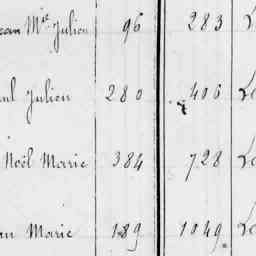 Jean Mie Julien 96 283
Julien 280 406
Noël Marie 384 728
Marie 189 1049